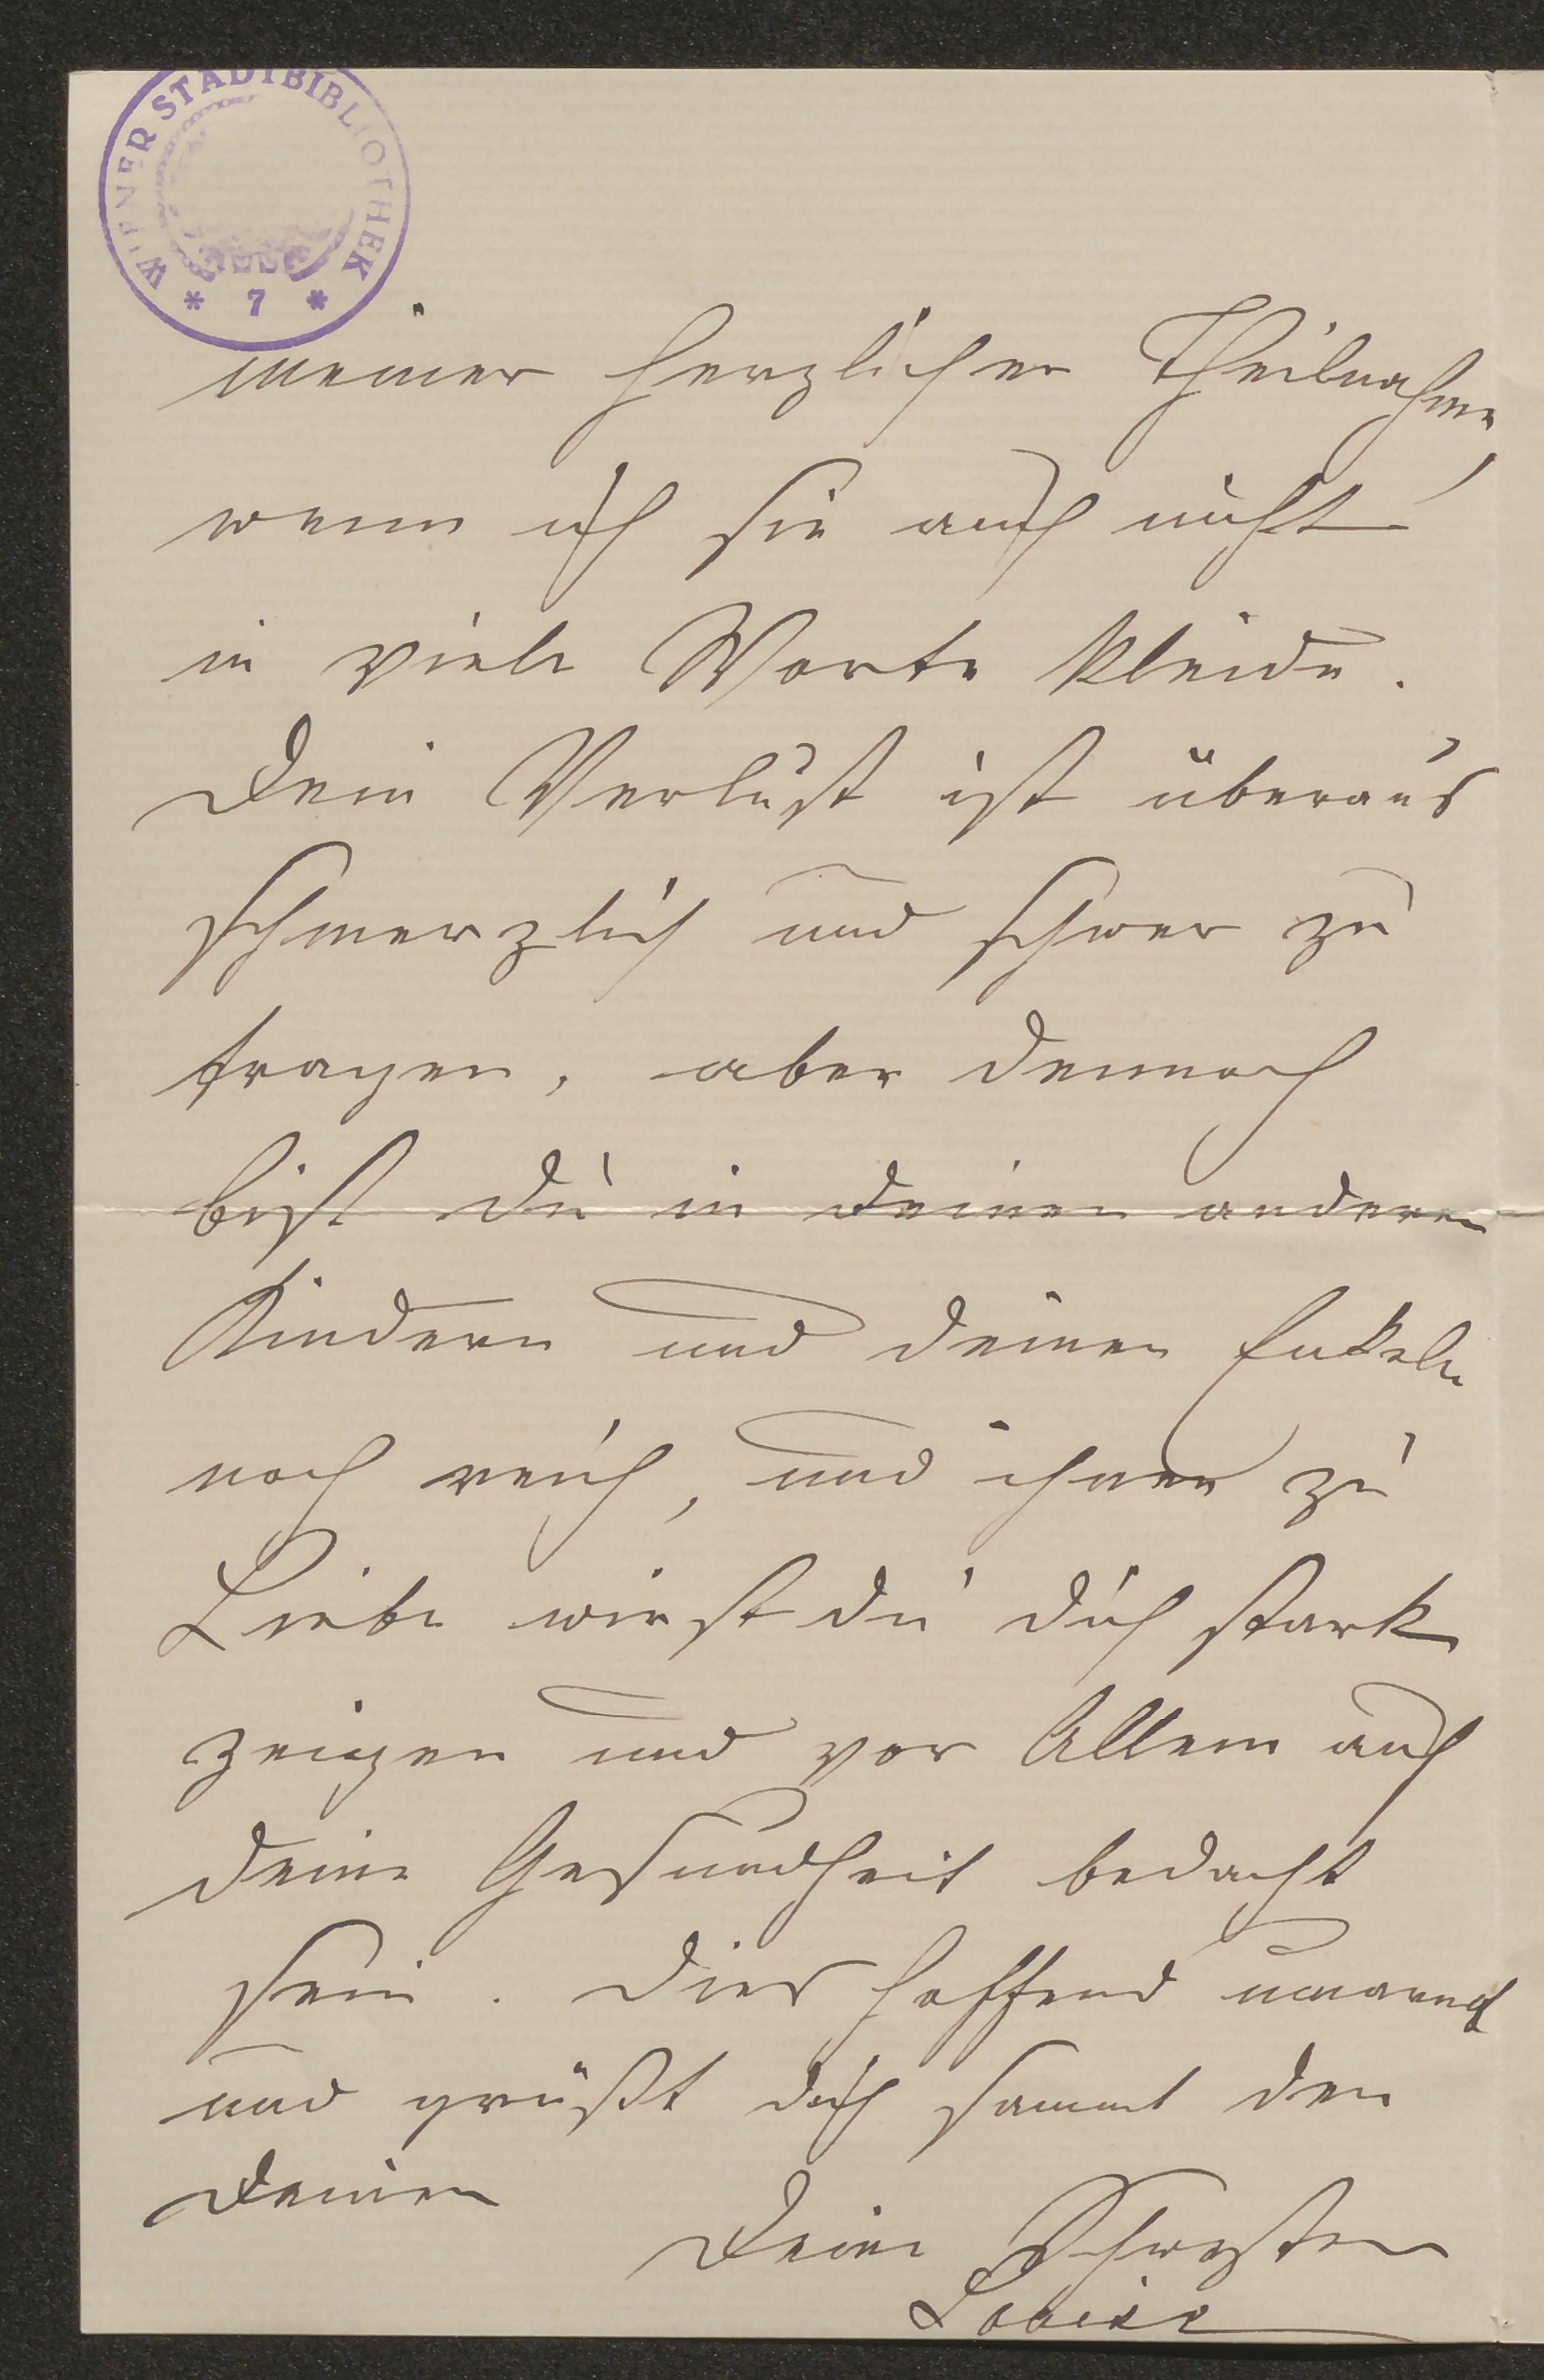 WIENER STADTBIBLIOTHEK
* 7 *
meiner herzlichen Theilnahme,
wenn ich sie auch nicht
in viele Worte kleide.
Dein Verlust ist überaus
schmerzlich und schwer zu
tragen, aber dennoch
bist du in deinen anderen
Kindern und deinen Enkeln
noch reich, und ihnen zu
Liebe wirst du dich stark
zeigen und vor Allem auf
deine Gesundheit bedacht
sein. Dies hoffend umarmt
und grüßt dich sammt den
Deinen
Deine Schwester
Louise